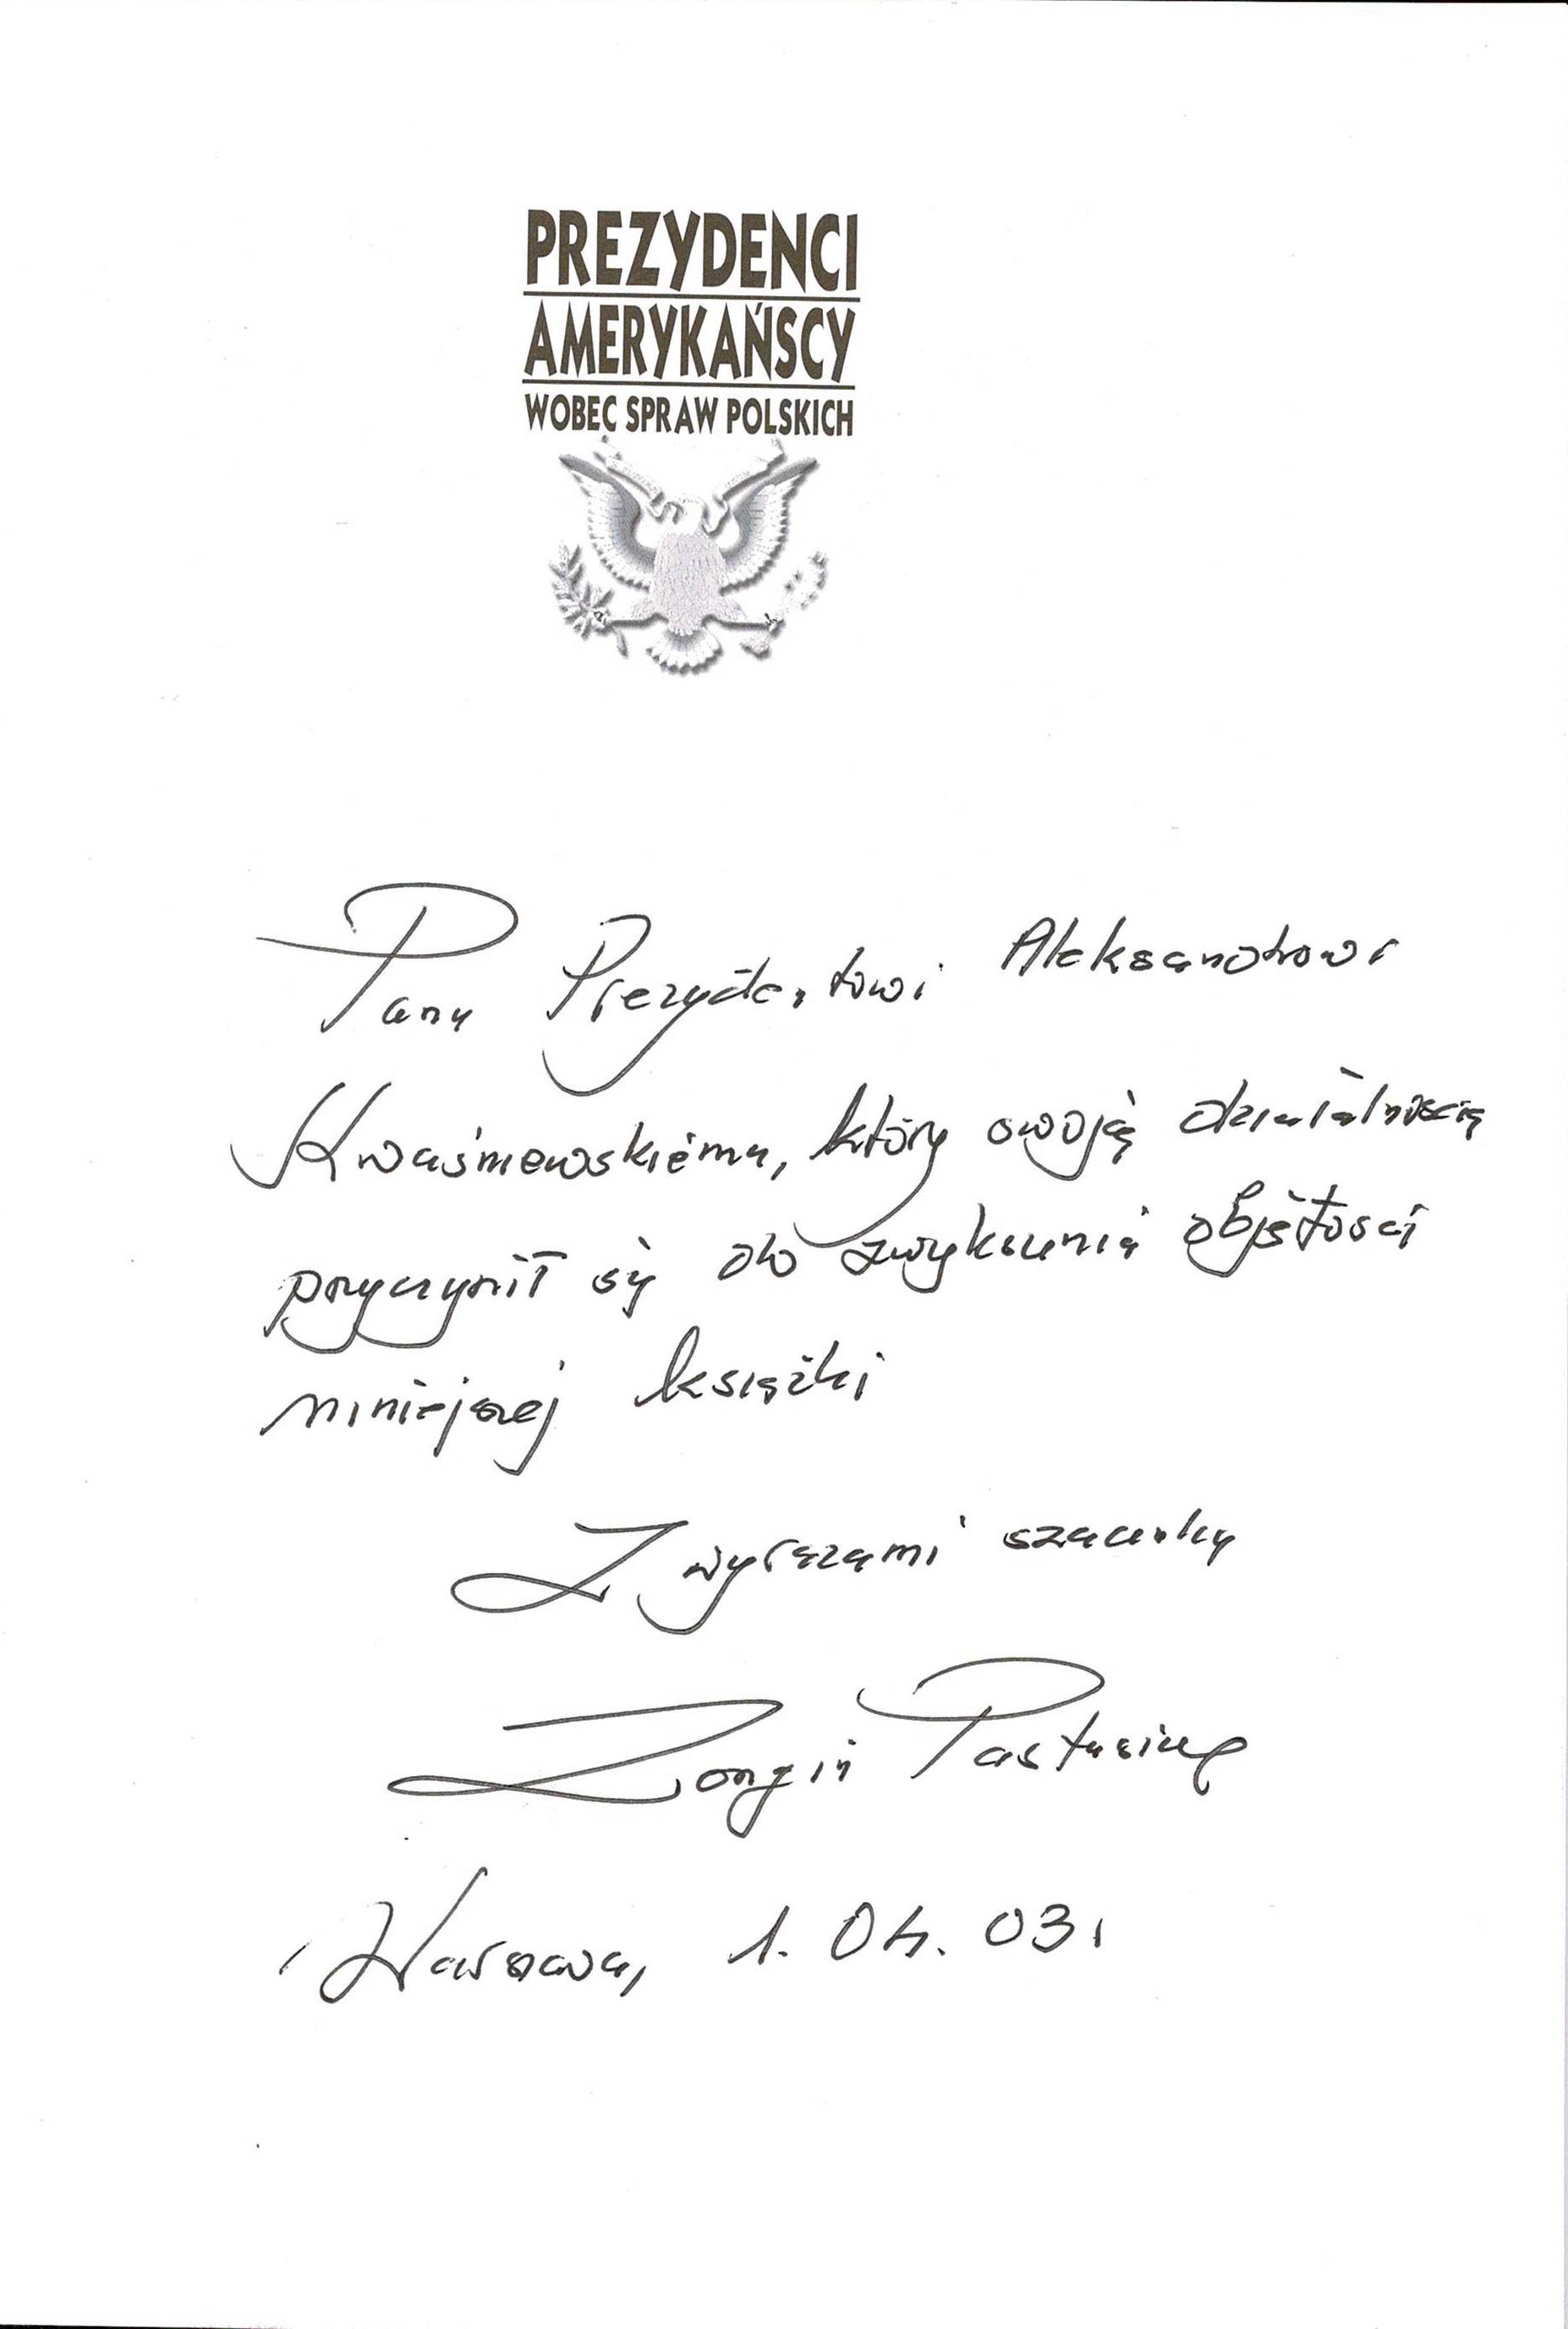 PREZYDENCI
AMERYKAŃSCY
WOBEC SPRAW POLSKICH
Panu Prezydentowi Aleksandrowi
Kwaśniewskiemu, który swoją działalnością
przyczynił się do zwiększenia objętości
niniejszej książki
Z wyrazami szacunku
Longin Pastusiak
Warszawa, 1. 04. 03.